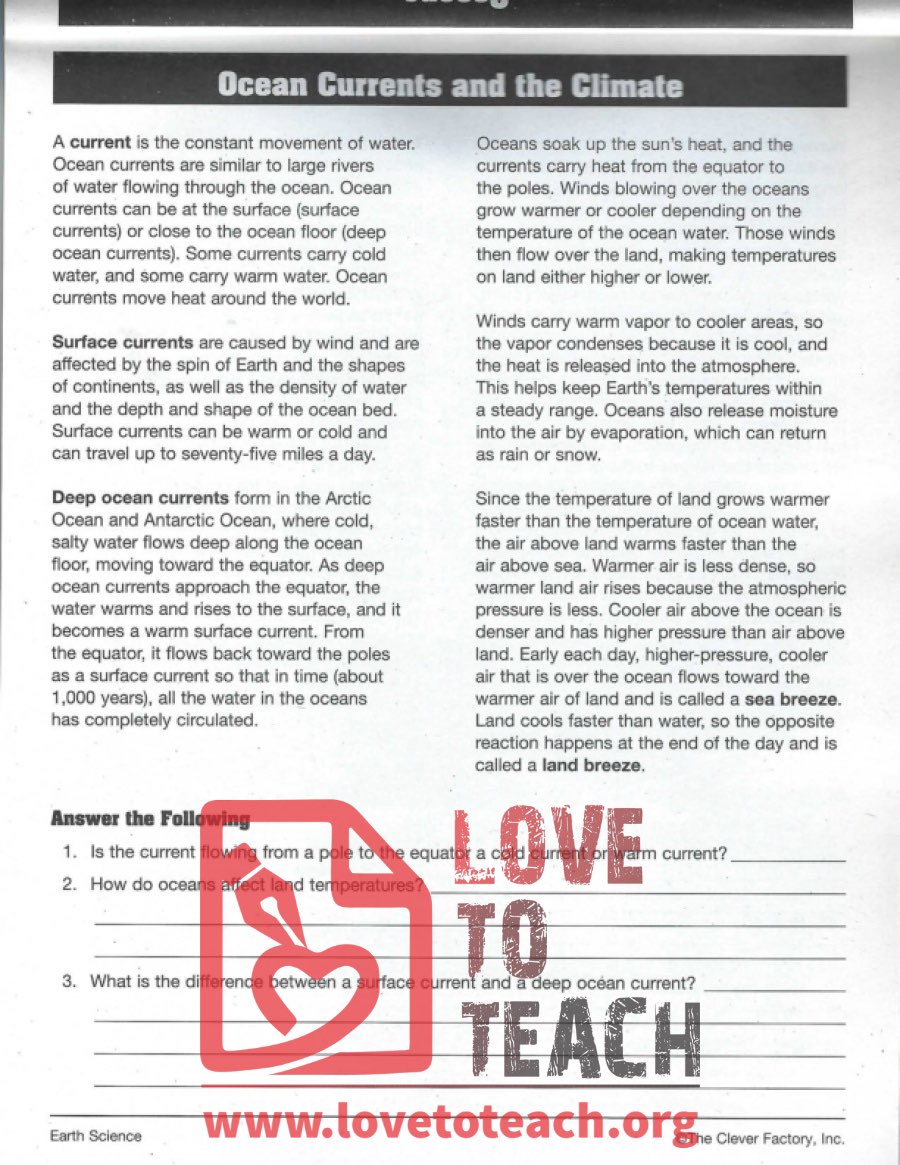 Ocean Currents and the Climate
A current is the constant movement of water.
Ocean currents are similar to large rivers
of water flowing through the ocean. Ocean
currents can be at the surface (surface
currents) or close to the ocean floor (deep
ocean currents). Some currents carry cold
water, and some carry warm water. Ocean
currents move heat around the world.
Surface currents are caused by wind and are
affected by the spin of Earth and the shapes
of continents, as well as the density of water
and the depth and shape of the ocean bed.
Surface currents can be warm or cold and
can travel up to seventy-five miles a day.
Deep ocean currents form in the Arctic
Ocean and Antarctic Ocean, where cold,
salty water flows deep along the ocean
floor, moving toward the equator. As deep
ocean currents approach the equator, the
water warms and rises to the surface, and it
becomes a warm surface current. From
the equator, it flows back toward the poles
as a surface current so that in time (about
1,000 years), all the water in the oceans
has completely circulated.
Oceans soak up the sun's heat, and the
currents carry heat from the equator to
the poles. Winds blowing over the oceans
grow warmer or cooler depending on the
temperature of the ocean water. Those winds
then flow over the land, making temperatures
on land either higher or lower.
Winds carry warm vapor to cooler areas, so
the vapor condenses because it is cool, and
the heat is released into the atmosphere.
This helps keep Earth's temperatures within
a steady range. Oceans also release moisture
into the air by evaporation, which can return
as rain or snow.
Since the temperature of land grows warmer
faster than the temperature of ocean water,
the air above land warms faster than the
air above sea. Warmer air is less dense, so
warmer land air rises because the atmospheric
pressure is less. Cooler air above the ocean is
denser and has higher pressure than air above
land. Early each day, higher-pressure, cooler
air that is over the ocean flows toward the
warmer air of land and is called a sea breeze.
Land cools faster than water, so the opposite
reaction happens at the end of the day and is
called a land breeze.
Answer the Following
1. Is the current flowing from a pole to the equator a cold current or warm current?
2. How do oceans affect land temperatures?
3. What is the difference between a surface current and a deep ocean current?
LOVE
TO
TEACH
www.lovetoteach.org
Earth Science
©The Clever Factory, Inc.